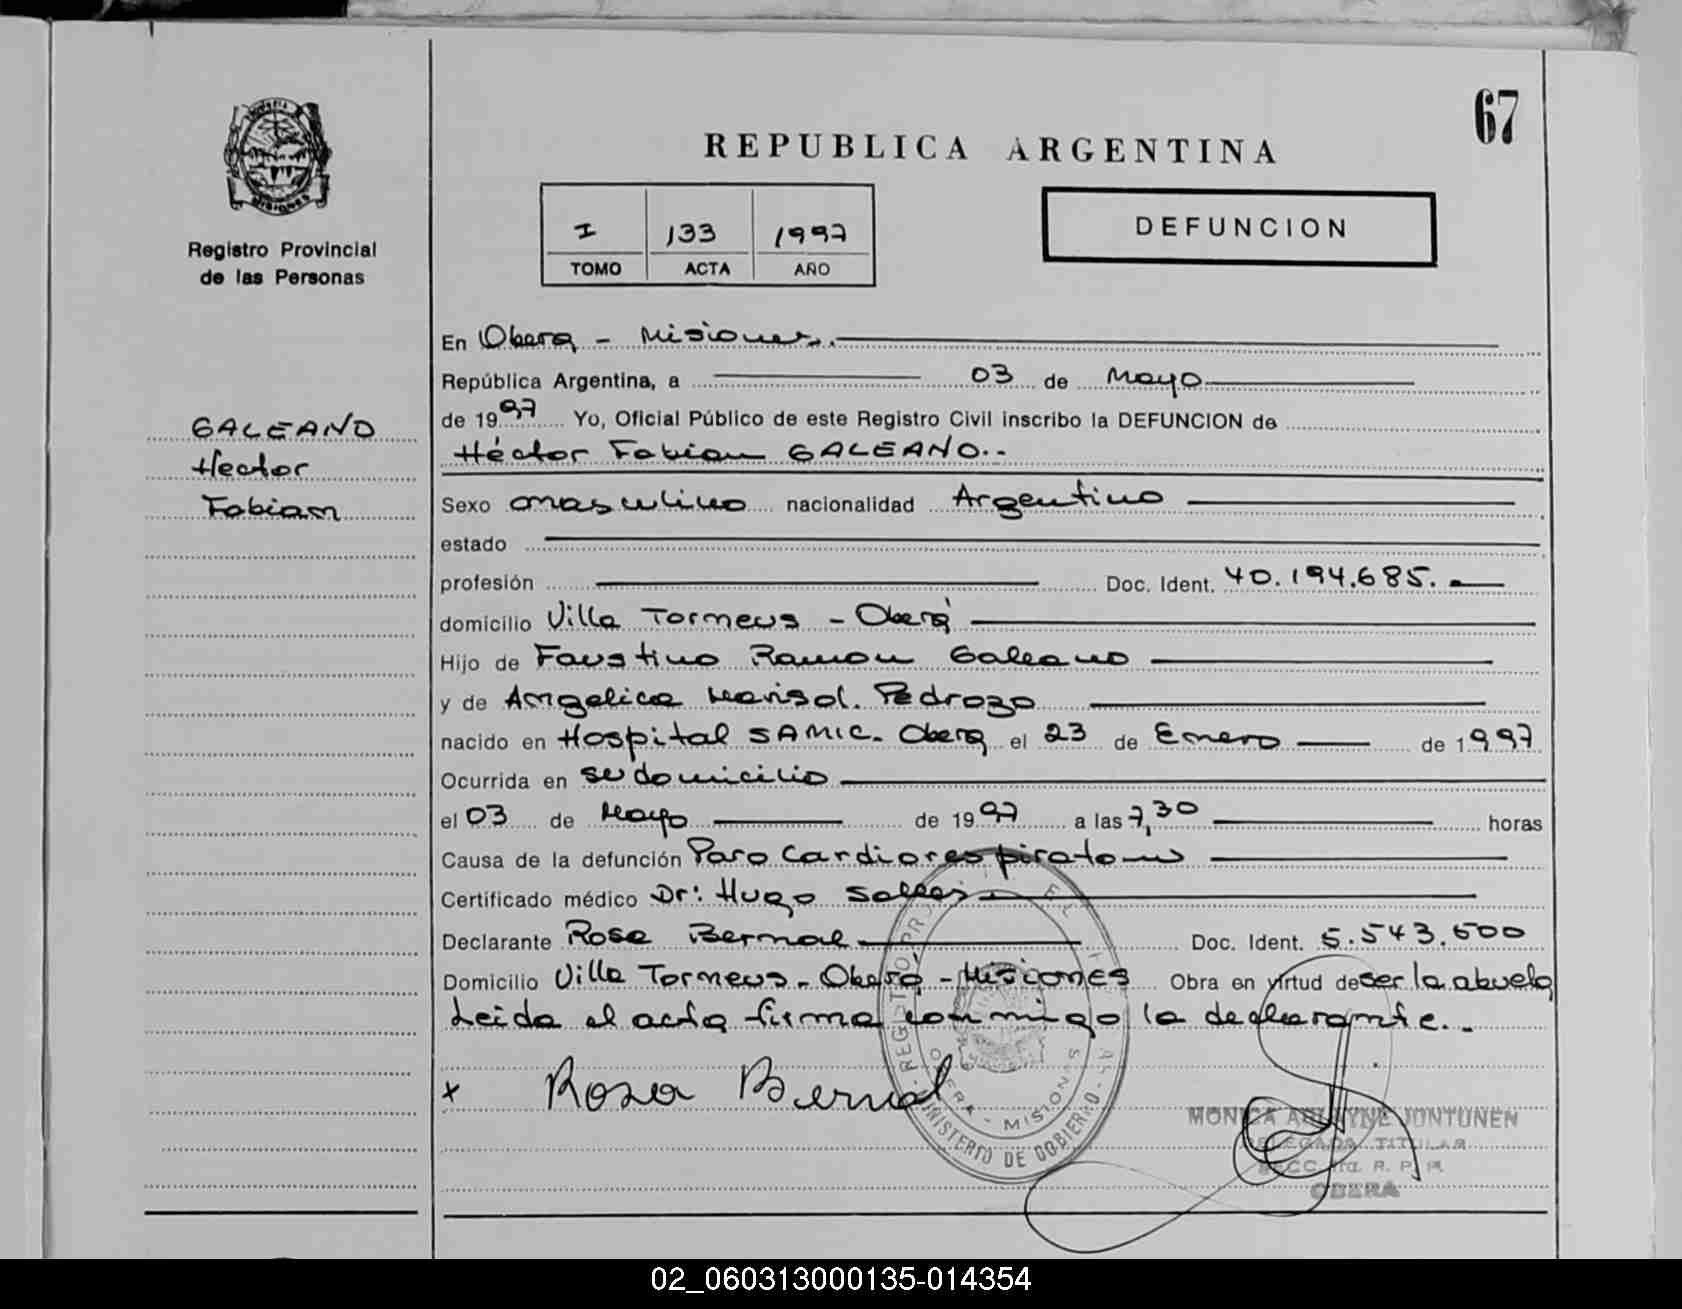 67
REPUBLICA ARGENTINA
MISIONES
Registro Provincial
de las Personas
I 133 1997
TOMO ACTA AÑO
DEFUNCION
GALEANO
Hector
Fabian
En Obera - Misiones.
República Argentina, a 03 de Mayo
de 1997 Yo, Oficial Público de este Registro Civil inscribo la DEFUNCION de
Héctor Fabian GALEANO.-
Sexo masculino nacionalidad Argentino
estado
profesión Doc. Ident. 40.194.685.
domicilio Villa Torneus - Oberá
Hijo de Faustino Ramon Galeano
y de Angelica Marisol. Pedrozo
nacido en Hospital SAMIC. Obera el 23 de Enero de 1997
Ocurrida en su domicilio
el 03 de Mayo de 1997 a las 7,30 horas
Causa de la defunción Paro Cardiorespiratorio
Certificado médico Dr: Hugo
Declarante Rosa Bernal Doc. Ident. 5.543.600
Domicilio Villa Torneus - Oberá - Misiones Obra en virtud de ser la abuela
Leida el acta firma conmigo la declarante.-
x Rosa Bernal
OBERA - MISIONES
MINISTERIO DE GOBIERNO
MONICA JONTUNEN
DELEGADA TITULAR
OBERA
02_060313000135-014354